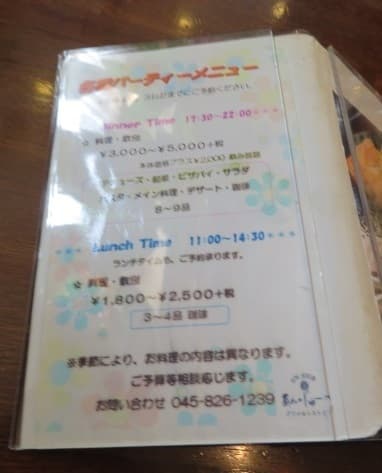 パーティーメニュー
Dinner Time 17:30~22:00
☆ 料理・数別
¥3,000~¥5,000+税
本体価格プラス¥2,000 飲み放題
ピザパイ・サラダ
パスタ・メイン料理・デザート・珈琲
8~9品
Lunch Time 11:00~14:30
ランチタイムも、ご予約承ります。
☆ 料理・数別
¥1,800~¥2,500+税
3~4品 珈琲
※季節により、お料理の内容は異なります。
ご予算等相談応じます。
お問い合わせ 045-826-1239